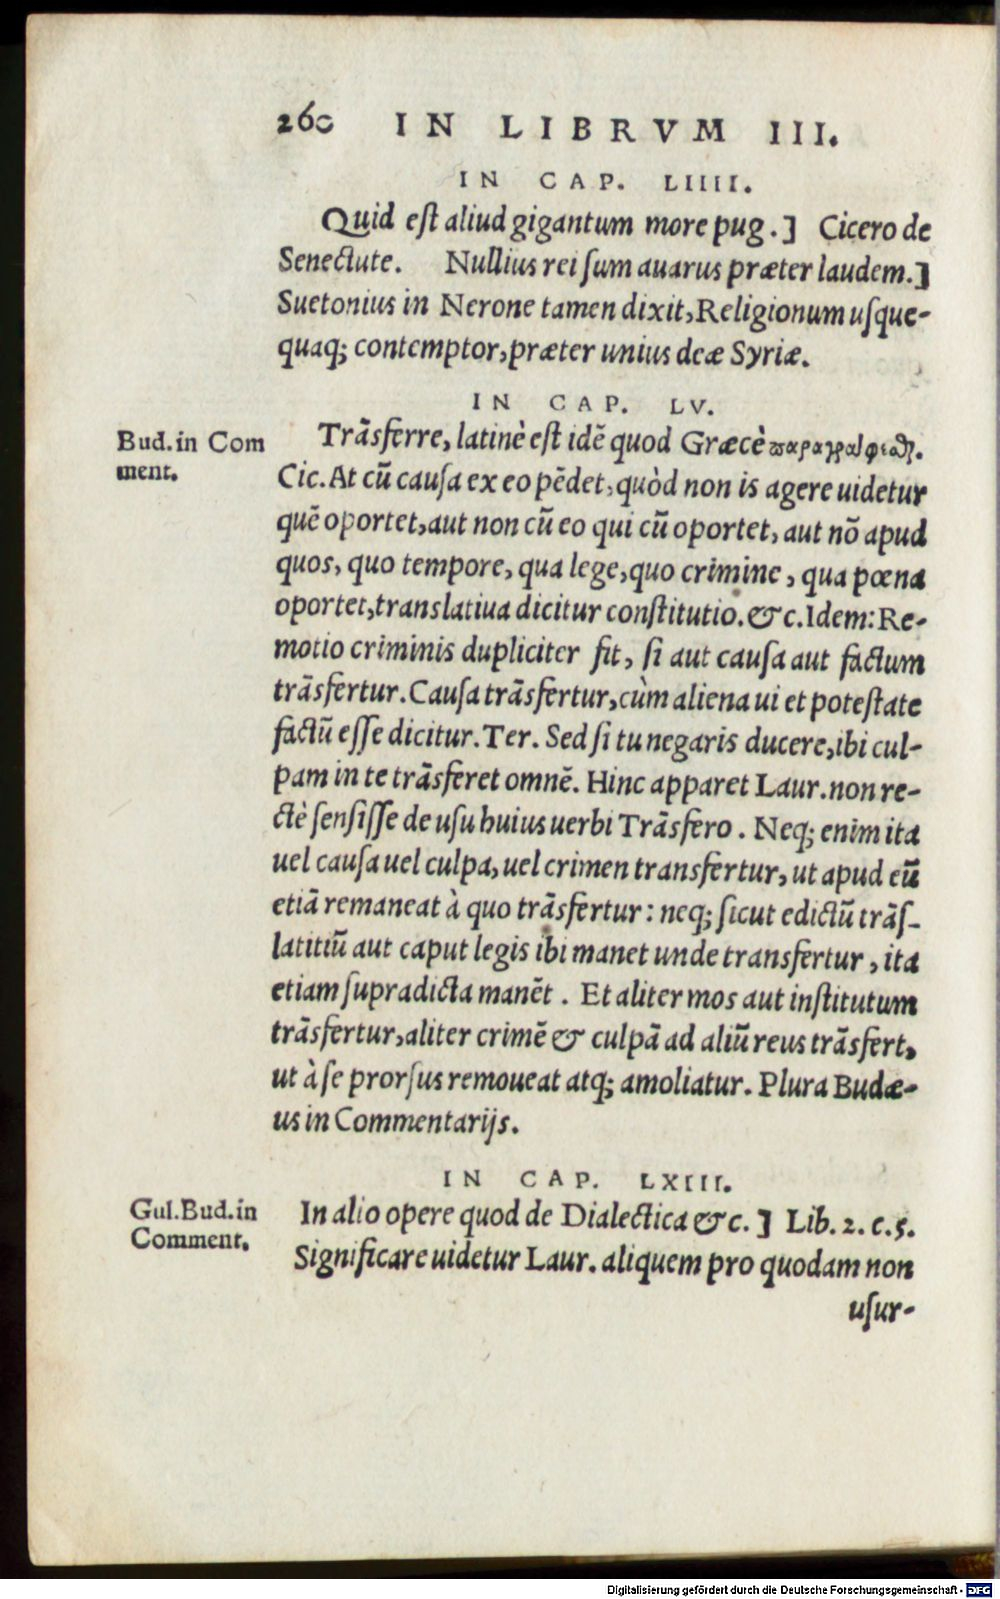 260 IN LIBRVM III.
IN CAP. LIIII.
Quid est aliud gigantum more pug.] Cicero de
Senectute. Nullius rei sum auarus præter laudem.]
Suetonius in Nerone tamen dixit, Religionum usque-
quaq; contemptor, præter unius deæ Syriæ.
IN CAP. LV.
Bud. in Com
ment.
Trãsferre, latinè est idẽ quod Græcè παραγράφεσθαι.
Cic. At cũ causa ex eo pẽdet, quòd non is agere uidetur
quẽ oportet, aut non cũ eo qui cũ oportet, aut nõ apud
quos, quo tempore, qua lege, quo crimine, qua pœna
oportet, translatiua dicitur constitutio. &c. Idem: Re-
motio criminis dupliciter fit, si aut causa aut factum
trãsfertur. Causa trãsfertur, cùm aliena ui et potestate
factũ esse dicitur. Ter. Sed si tu negaris ducere, ibi cul-
pam in te trãsferet omnẽ. Hinc apparet Laur. non re-
ctè sensisse de usu huius uerbi Trãsfero. Neq; enim ita
uel causa uel culpa, uel crimen transfertur, ut apud eũ
etiã remaneat à quo trãsfertur: neq; sicut edictũ trãs-
latitiũ aut caput legis ibi manet unde transfertur, ita
etiam supradicta manẽt. Et aliter mos aut institutum
trãsfertur, aliter crimẽ & culpã ad aliũ reus trãsfert,
ut à se prorsus remoueat atq; amoliatur. Plura Budæ-
us in Commentarijs.
IN CAP. LXIII.
Gul. Bud. in
Comment.
In alio opere quod de Dialectica &c.] Lib. 2. c. 5.
Significare uidetur Laur. aliquem pro quodam non
usur-
Digitalisierung gefördert durch die Deutsche Forschungsgemeinschaft - DFG